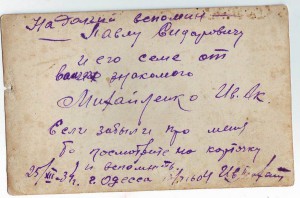 На долгий вспомин
Павлу Сидоровичу
и его семе от
знакомого
Михайленко Ив. Ак.
Если забыли про меня
то посмотрите на карточку
и вспомните
25/XII-34 г. Одесса